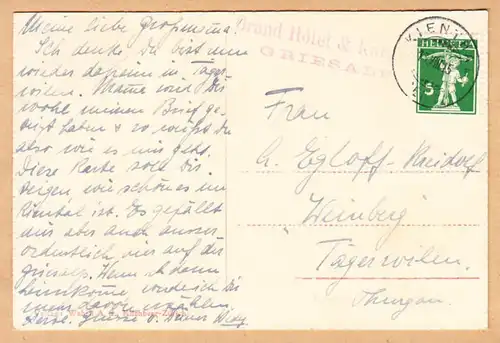 Meine liebe Grossmama!
Ich denke Du bist nun
wieder daheim in Täger-
wilen. Mama wird Dir
wohl meinen Brief ge-
zeigt haben & so weisst Du
also wie es mir geht.
Diese Karte soll Dir
zeigen wie schön es im
Kiental ist. Es gefällt
mir aber auch ausser-
ordentlich hier auf der
Griesalp. Wenn ich dann
heimkome, werde ich Dir
mehr davon erzählen.
Herzl. Grüsse v. Deiner
Grand Hôtel & Kur
GRIESALP
KIENTAL
HELVETIA
5
Frau
A. Egloff-Neidolf
"Weinberg"
Tägerwilen.
Thurgau.